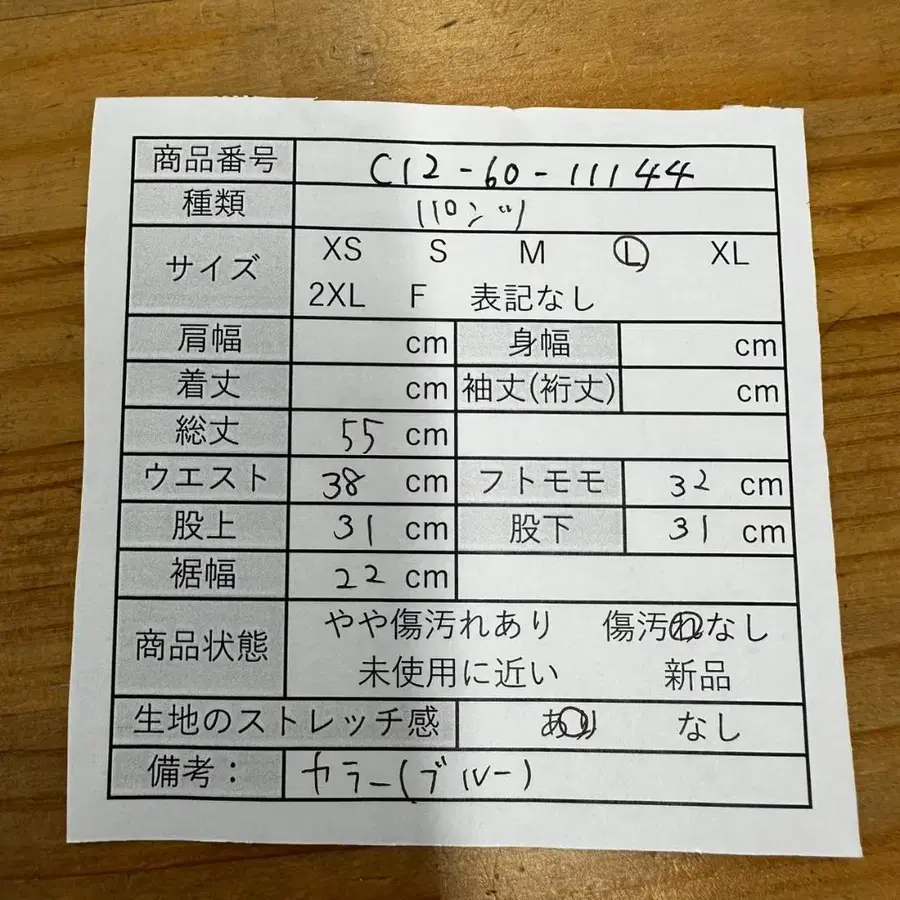 商品番号 C12-60-11144
種類 パンツ
サイズ XS S M L XL
2XL F 表記なし
肩幅 cm 身幅 cm
着丈 cm 袖丈(裄丈) cm
総丈 55 cm
ウエスト 38 cm フトモモ 32 cm
股上 31 cm 股下 31 cm
裾幅 22 cm
商品状態 やや傷汚れあり 傷汚れなし
未使用に近い 新品
生地のストレッチ感 あり なし
備考： カラー(ブルー)